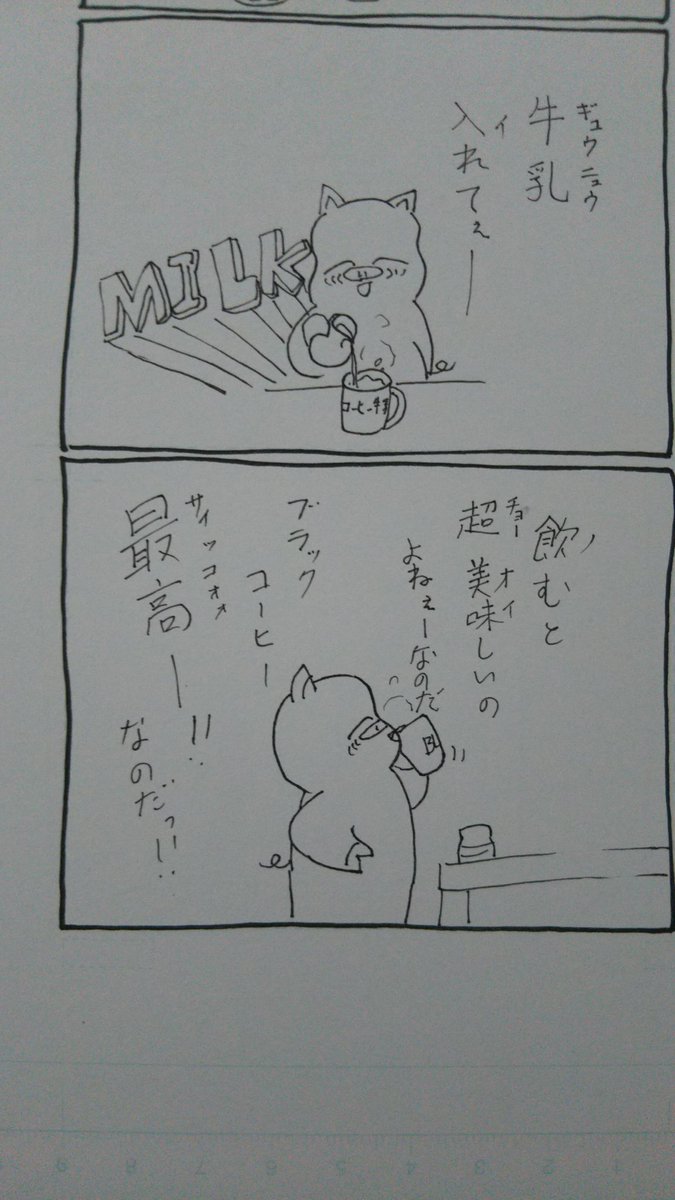 ギュウニュウ
牛乳
イ
入れてぇー
MILK
コーヒー牛乳
ノ
飲むと
チョー オイ
超美味しいの
よねぇーなのだ
ブラック
コーヒー
サイッコォォ
最高ー!!
なのだっ!!
BL
1
2
3
4
5
6
7
8
9